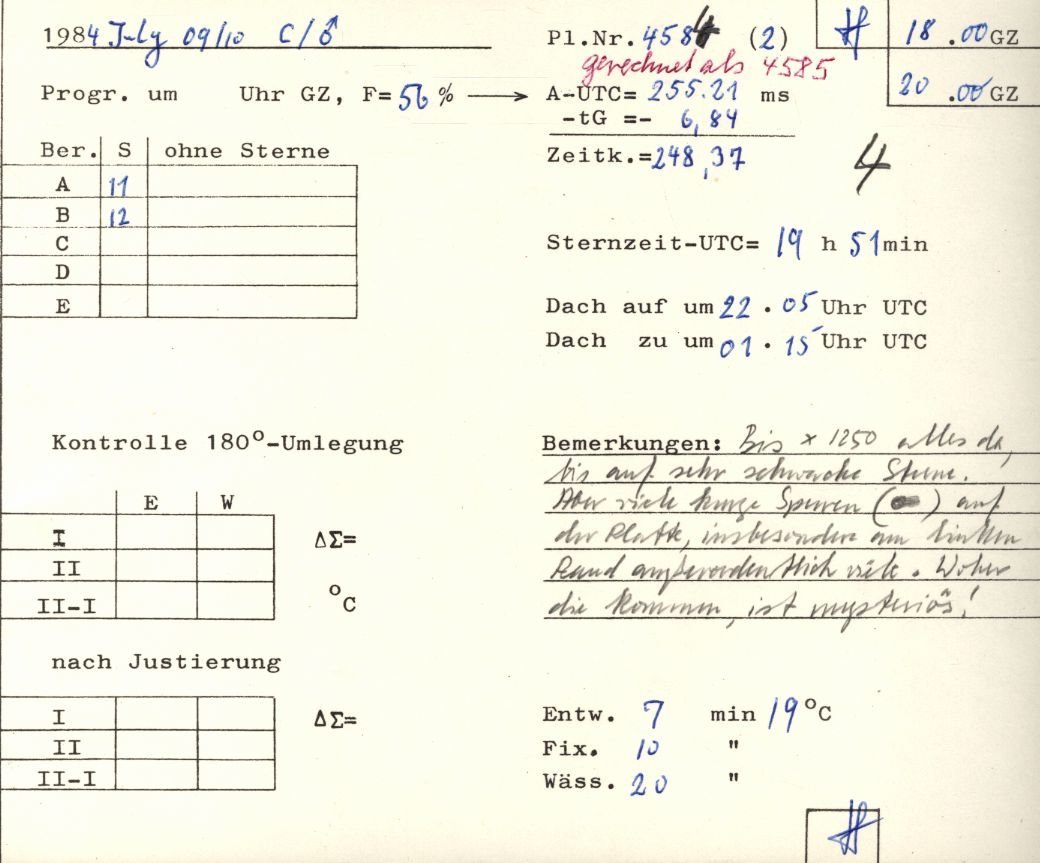 1984 July 09/10 C/♂
Pl.Nr. 4584 (2)
18.00 GZ
gerechnet als 4585
20.00 GZ
Progr. um Uhr GZ, F= 56 % ⟶ A-UTC= 255.21 ms
-tG =- 6,84
Zeitk.= 248,37
4
Ber. S ohne Sterne
A 11
B 12
C
D
E
Sternzeit-UTC= 19 h 51 min
Dach auf um 22.05 Uhr UTC
Dach zu um 01.15 Uhr UTC
Kontrolle 180°-Umlegung
E W
I ΔΣ=
II
II-I °C
Bemerkungen: Bis × 1250 alles da,
bis auf sehr schwache Sterne.
Aber viele kurze Spuren ( ) auf
der Platte, insbesondere am linken
Rand außerordentlich viele. Woher
die kommen, ist mysteriös!
nach Justierung
I ΔΣ=
II
II-I
Entw. 7 min 19 °C
Fix. 10 "
Wäss. 20 "